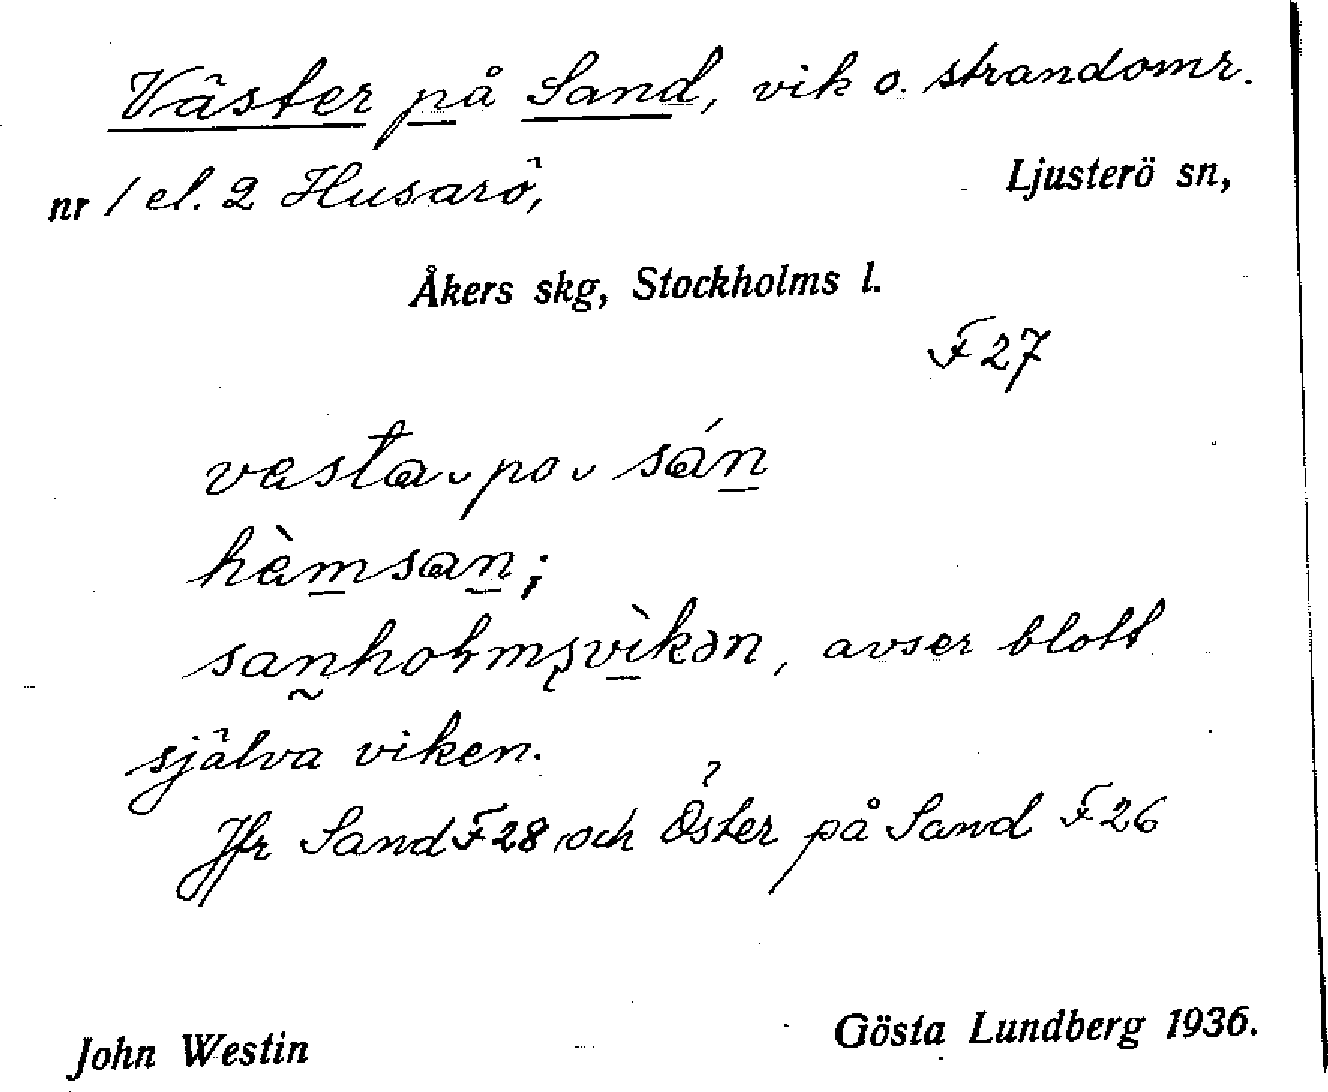 Väster på Sand, vik o. strandomr.
nr 1 el. 2 Husarö, Ljusterö sn,
Åkers skg, Stockholms l.
F 27
vesta˯po˯sán
hèmsan;
sanholmsvìkən, avser blott
själva viken.
Jfr Sand F 28 och Öster på Sand F 26
John Westin Gösta Lundberg 1936.